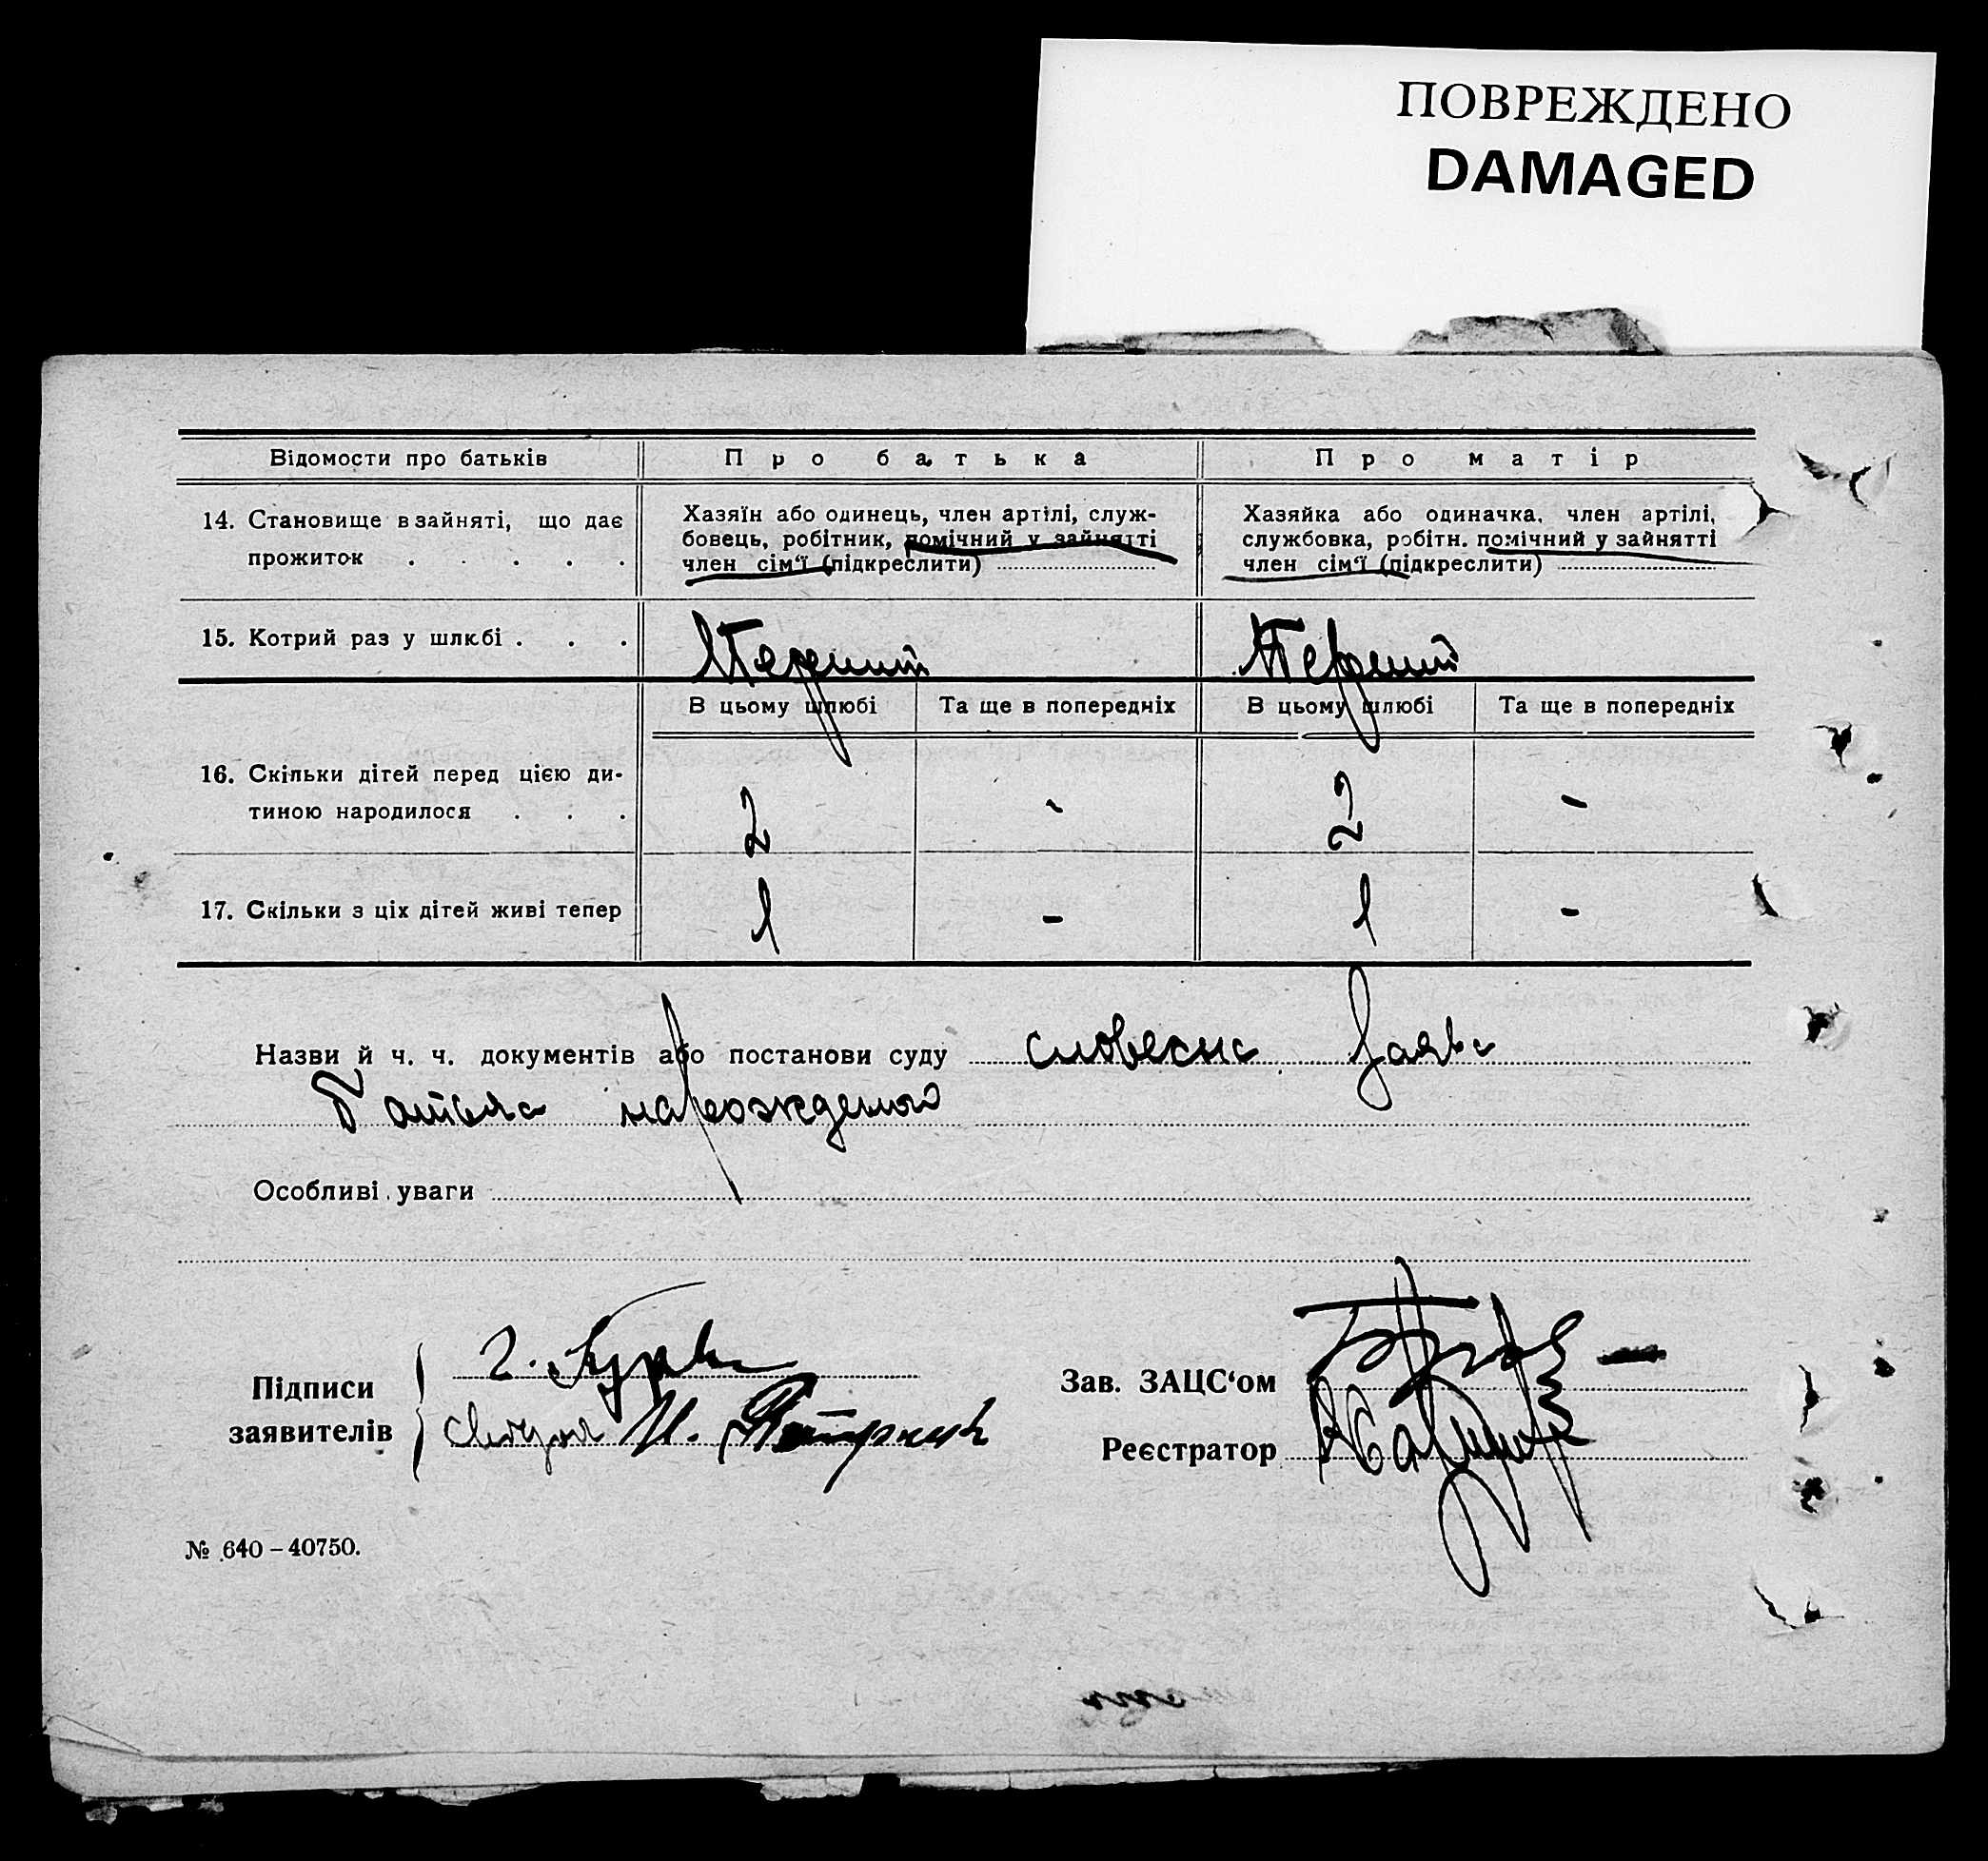 ПОВРЕЖДЕНО
DAMAGED
Відомости про батьків
Про батька
Про матір
14. Становище в зайняті, що дає
прожиток . . . . .
Хазяїн або одинець, член артілі, служ-
бовець, робітник, помічний у зайнятті
член сім‘ї (підкреслити)
Хазяйка або одиначка, член артілі,
службовка, робітн. помічний у зайнятті
член сім‘ї (підкреслити)
15. Котрий раз у шлюбі . . .
Перший
Перший
В цьому шлюбі
Та ще в попередніх
В цьому шлюбі
Та ще в попередніх
16. Скільки дітей перед цією ди-
тиною народилося . . .
2
-
2
-
17. Скільки з ціх дітей живі тепер
1
-
1
-
Назви й ч. ч. документів або постанови суду словесна заява
Батька
Особливі уваги
Підписи
заявителів
Зав. ЗАЦС‘ом
Реєстратор
№ 640 – 40750.